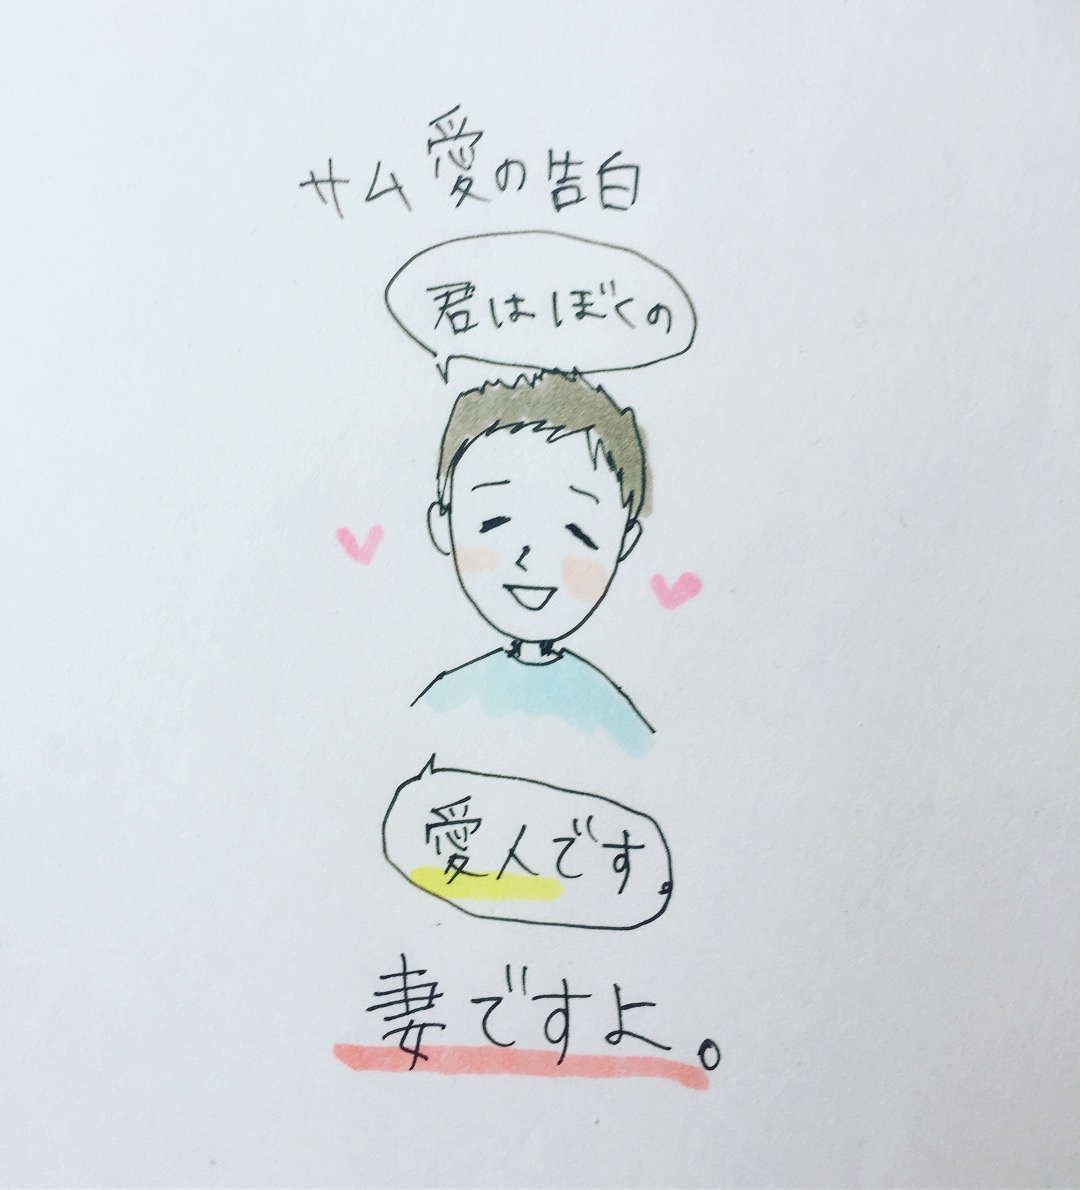 サム愛の告白
君はぼくの
愛人です。
妻ですよ。